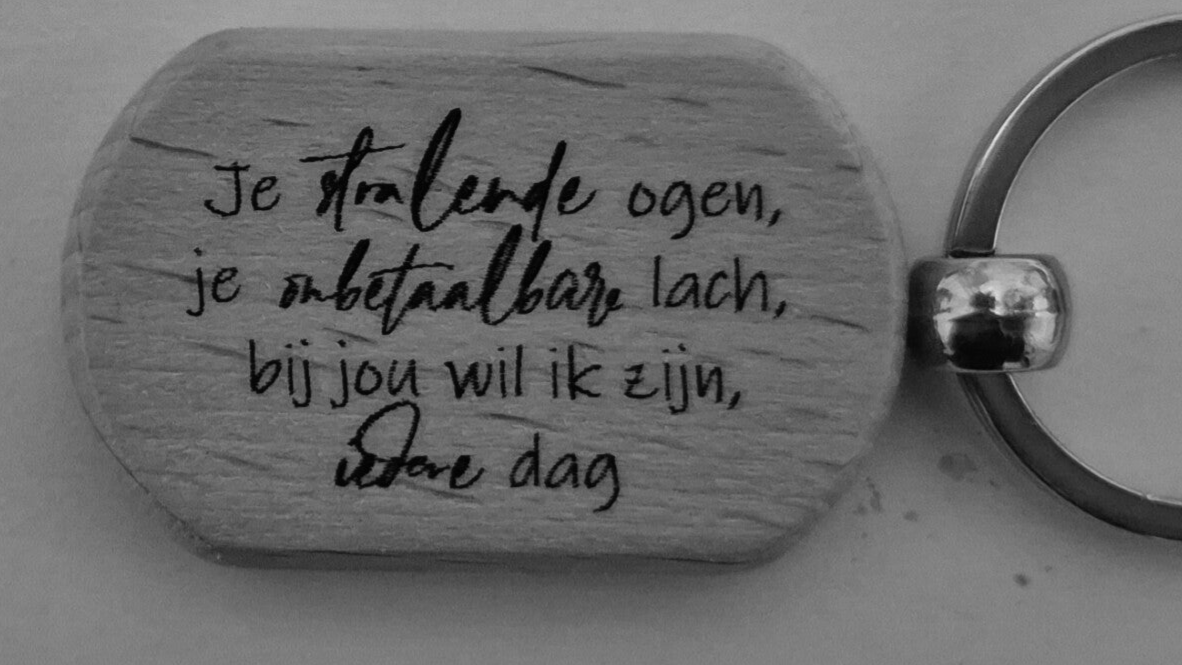 Je stralende ogen,
je onbetaalbare lach,
bij jou wil ik zijn,
iedere dag